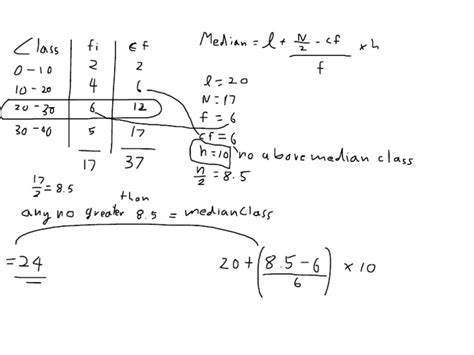 Class fi cf
0-10 2 2
10-20 4 6
20-30 6 12
30-40 5 17
17 37
17/2 = 8.5
any no greater than 8.5 = median class
= 24
Median = l + (N/2 - cf)/f x h
l = 20
N = 17
f = 6
cf = 6
h = 10 no above median class
n/2 = 8.5
20 + (8.5 - 6 / 6) x 10